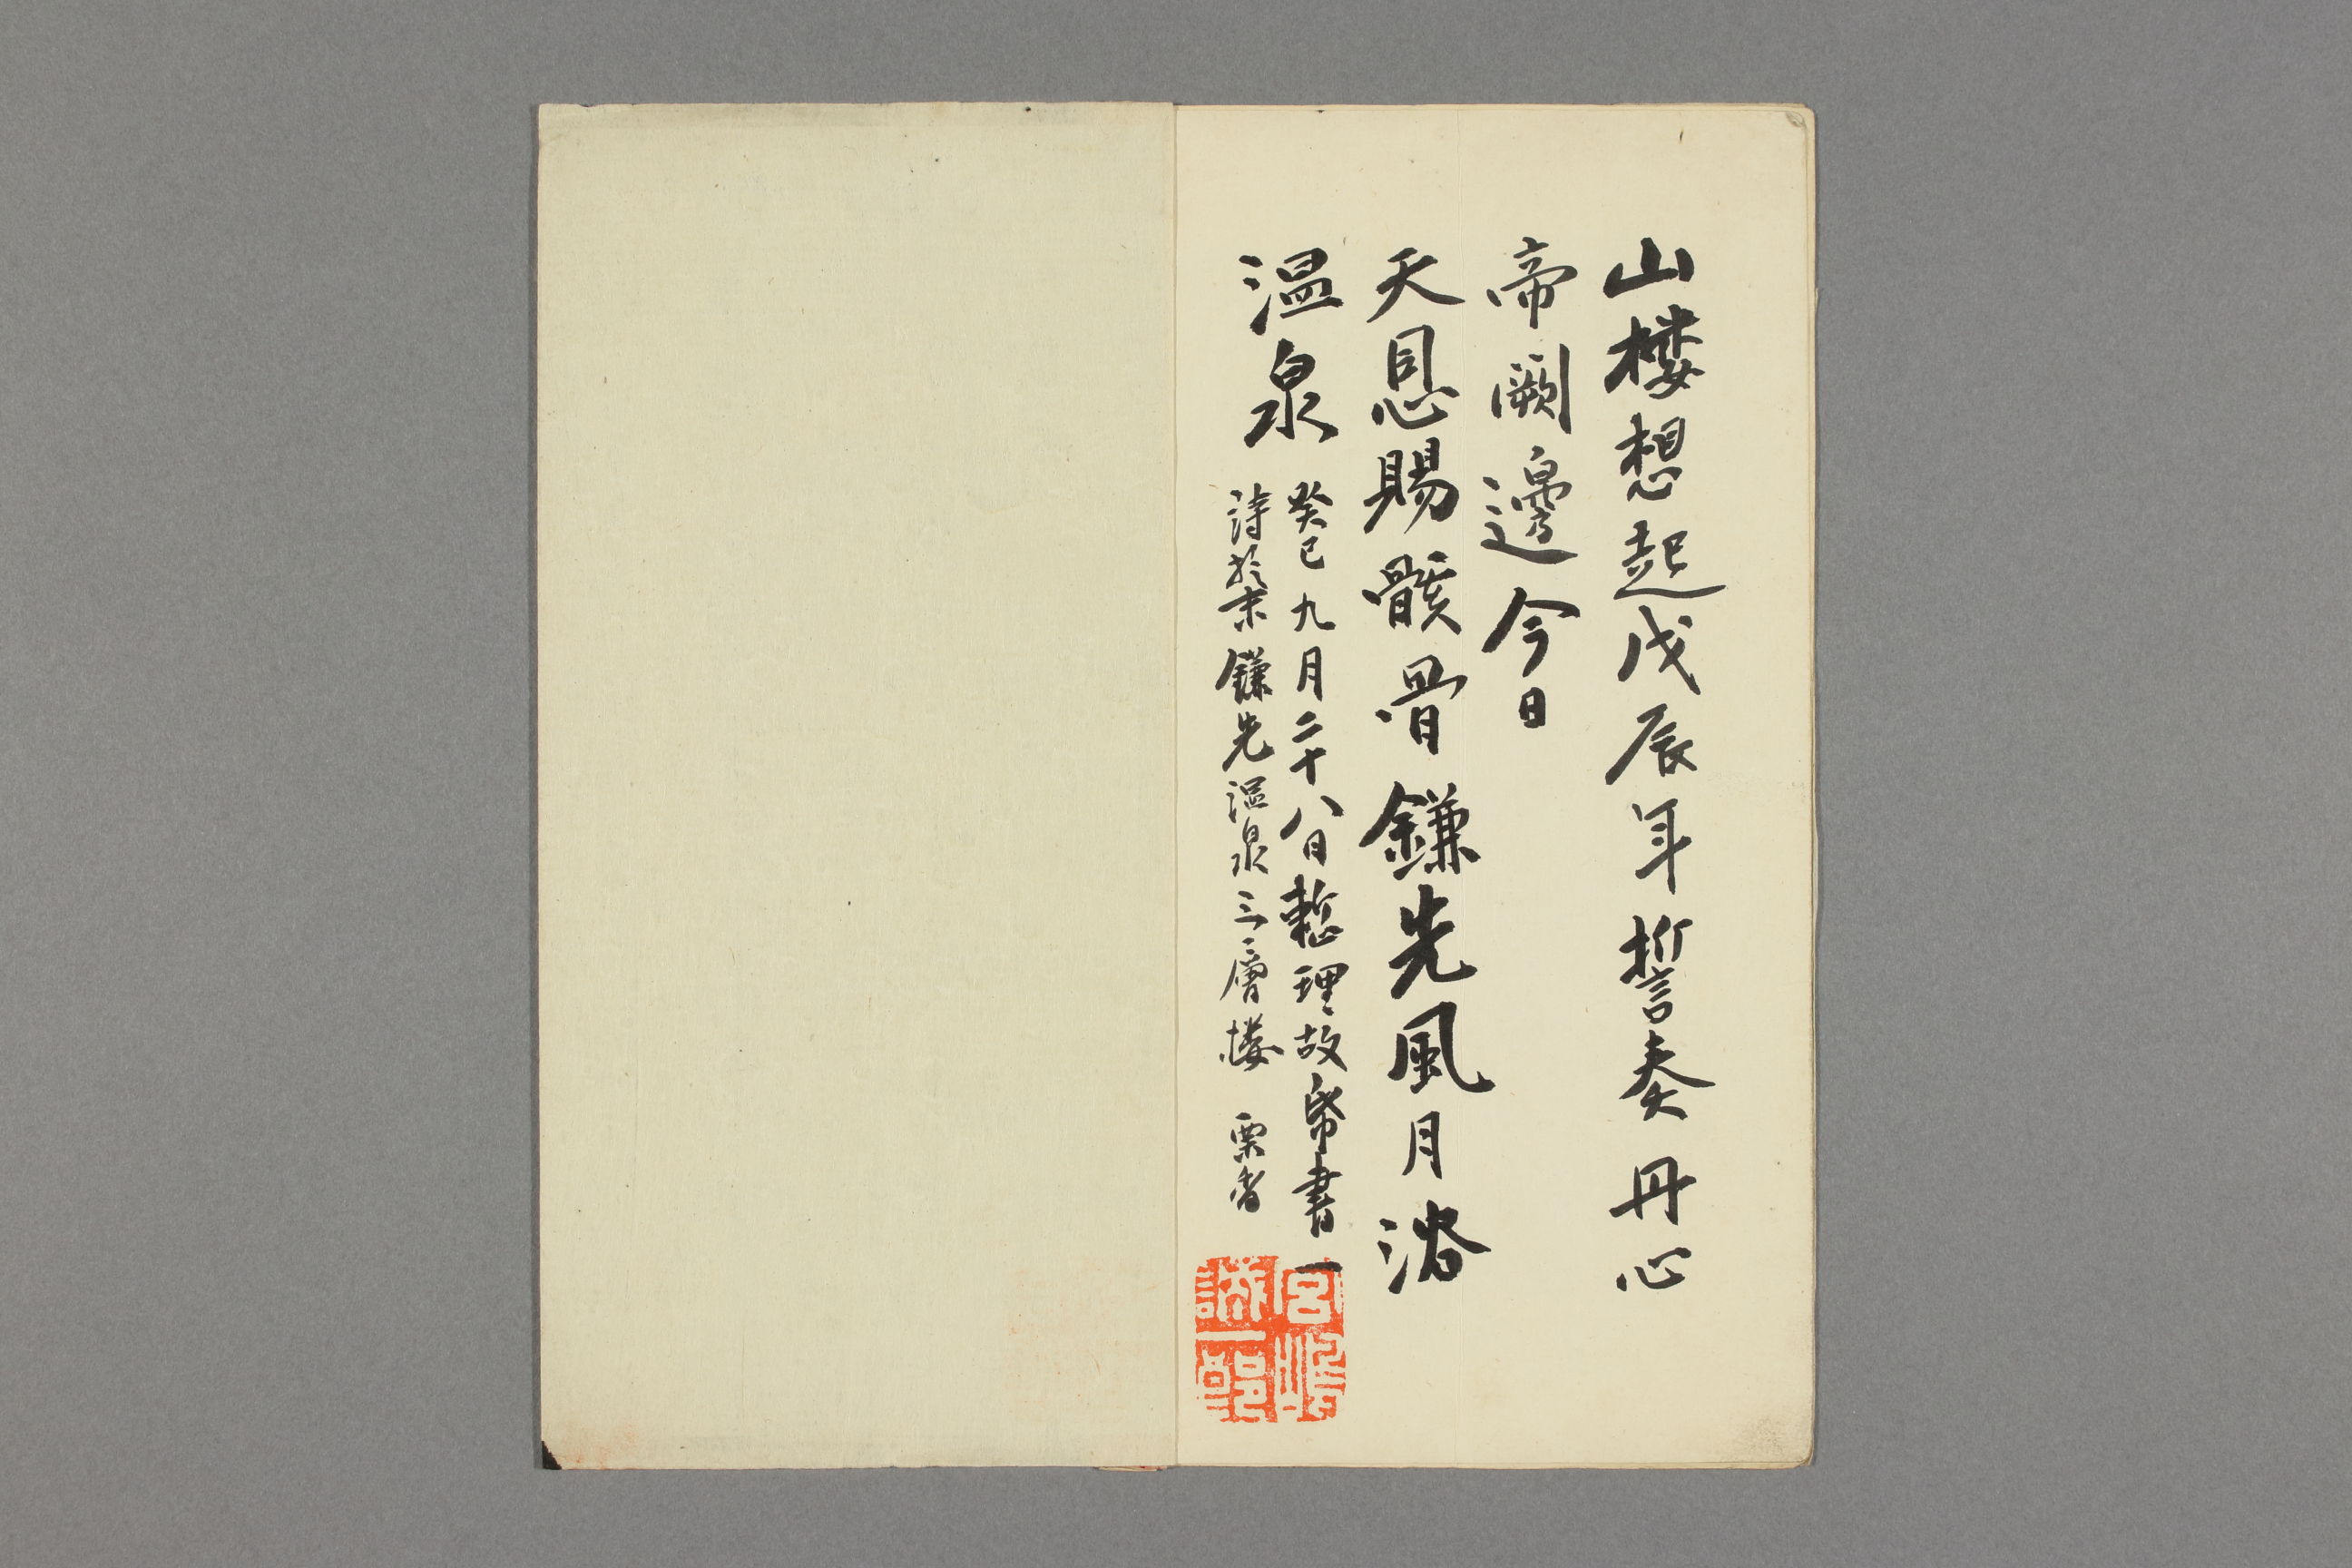 山楼想起戊辰年誓奏丹心
帝闕邊今日
天恩賜骸骨鎌先風月浴
温泉
癸巳九月二十八日整理故帋書一
詩於末鎌先温泉三層楼 栗香
宮島
誠一郎